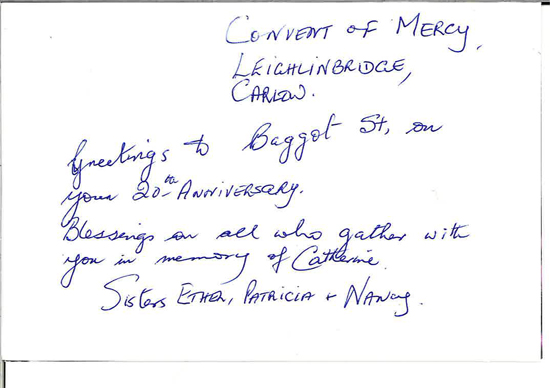 CONVENT OF MERCY,
LEIGHLINBRIDGE,
CARLOW.
Greetings to Baggot St, on
your 20th ANNIVERSARY.
Blessings on all who gather with
you in memory of Catherine.
Sisters ETHEL, PATRICIA + NANCY.